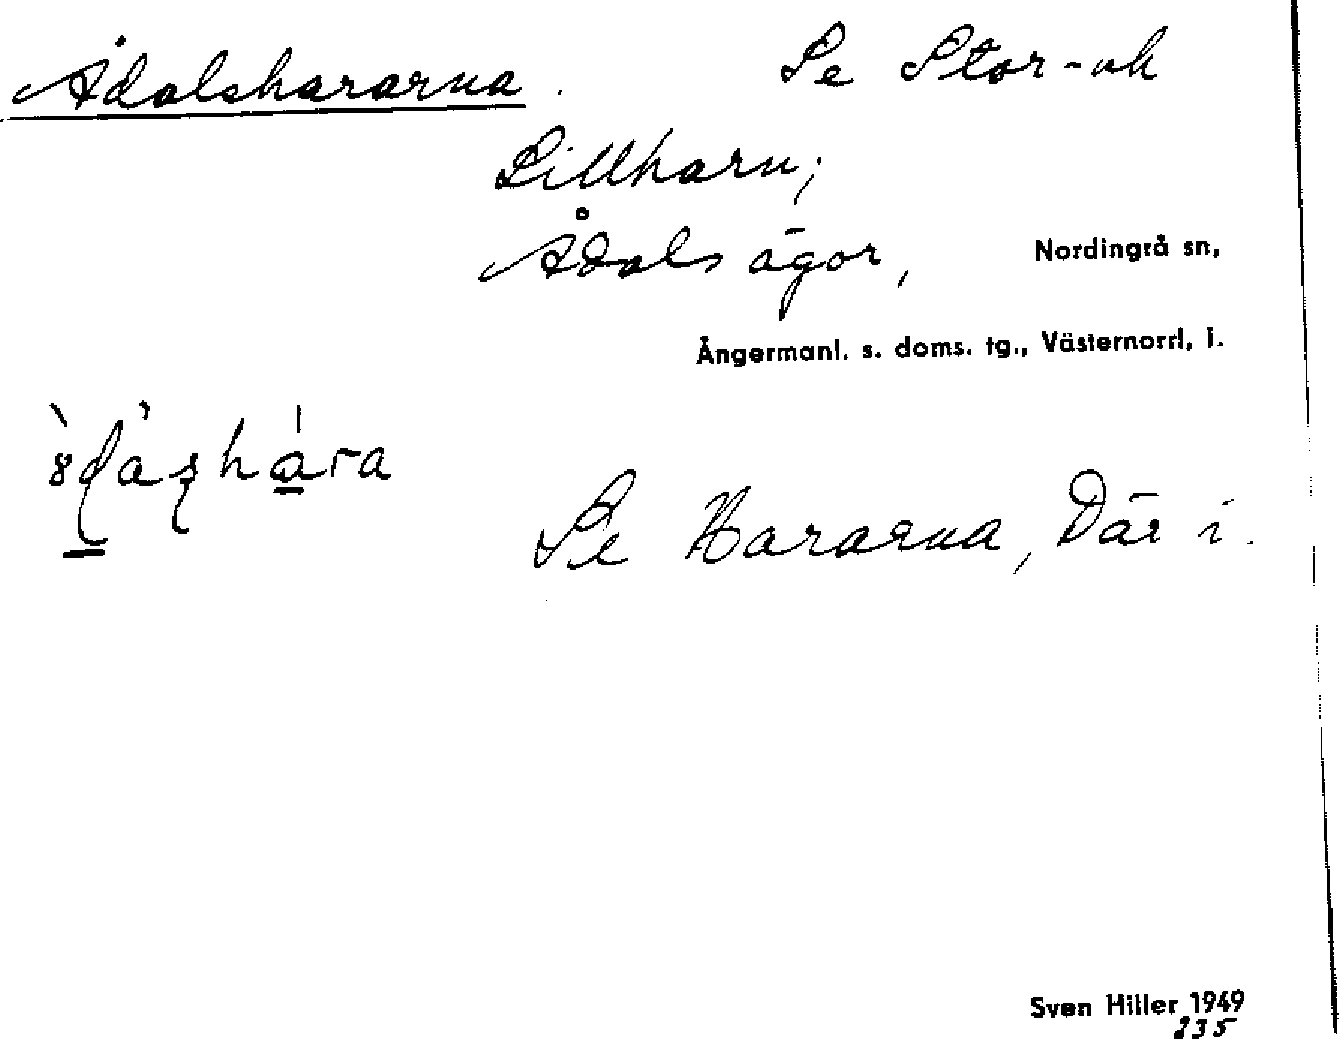 Ådalshararna. Se Stor- och
Lillharn;
Ådals ägor, Nordingrå sn,
Ångermanl. s. doms. tg., Västernorrl. l.
Se Hararna, Där i.
Sven Hiller 1949
235